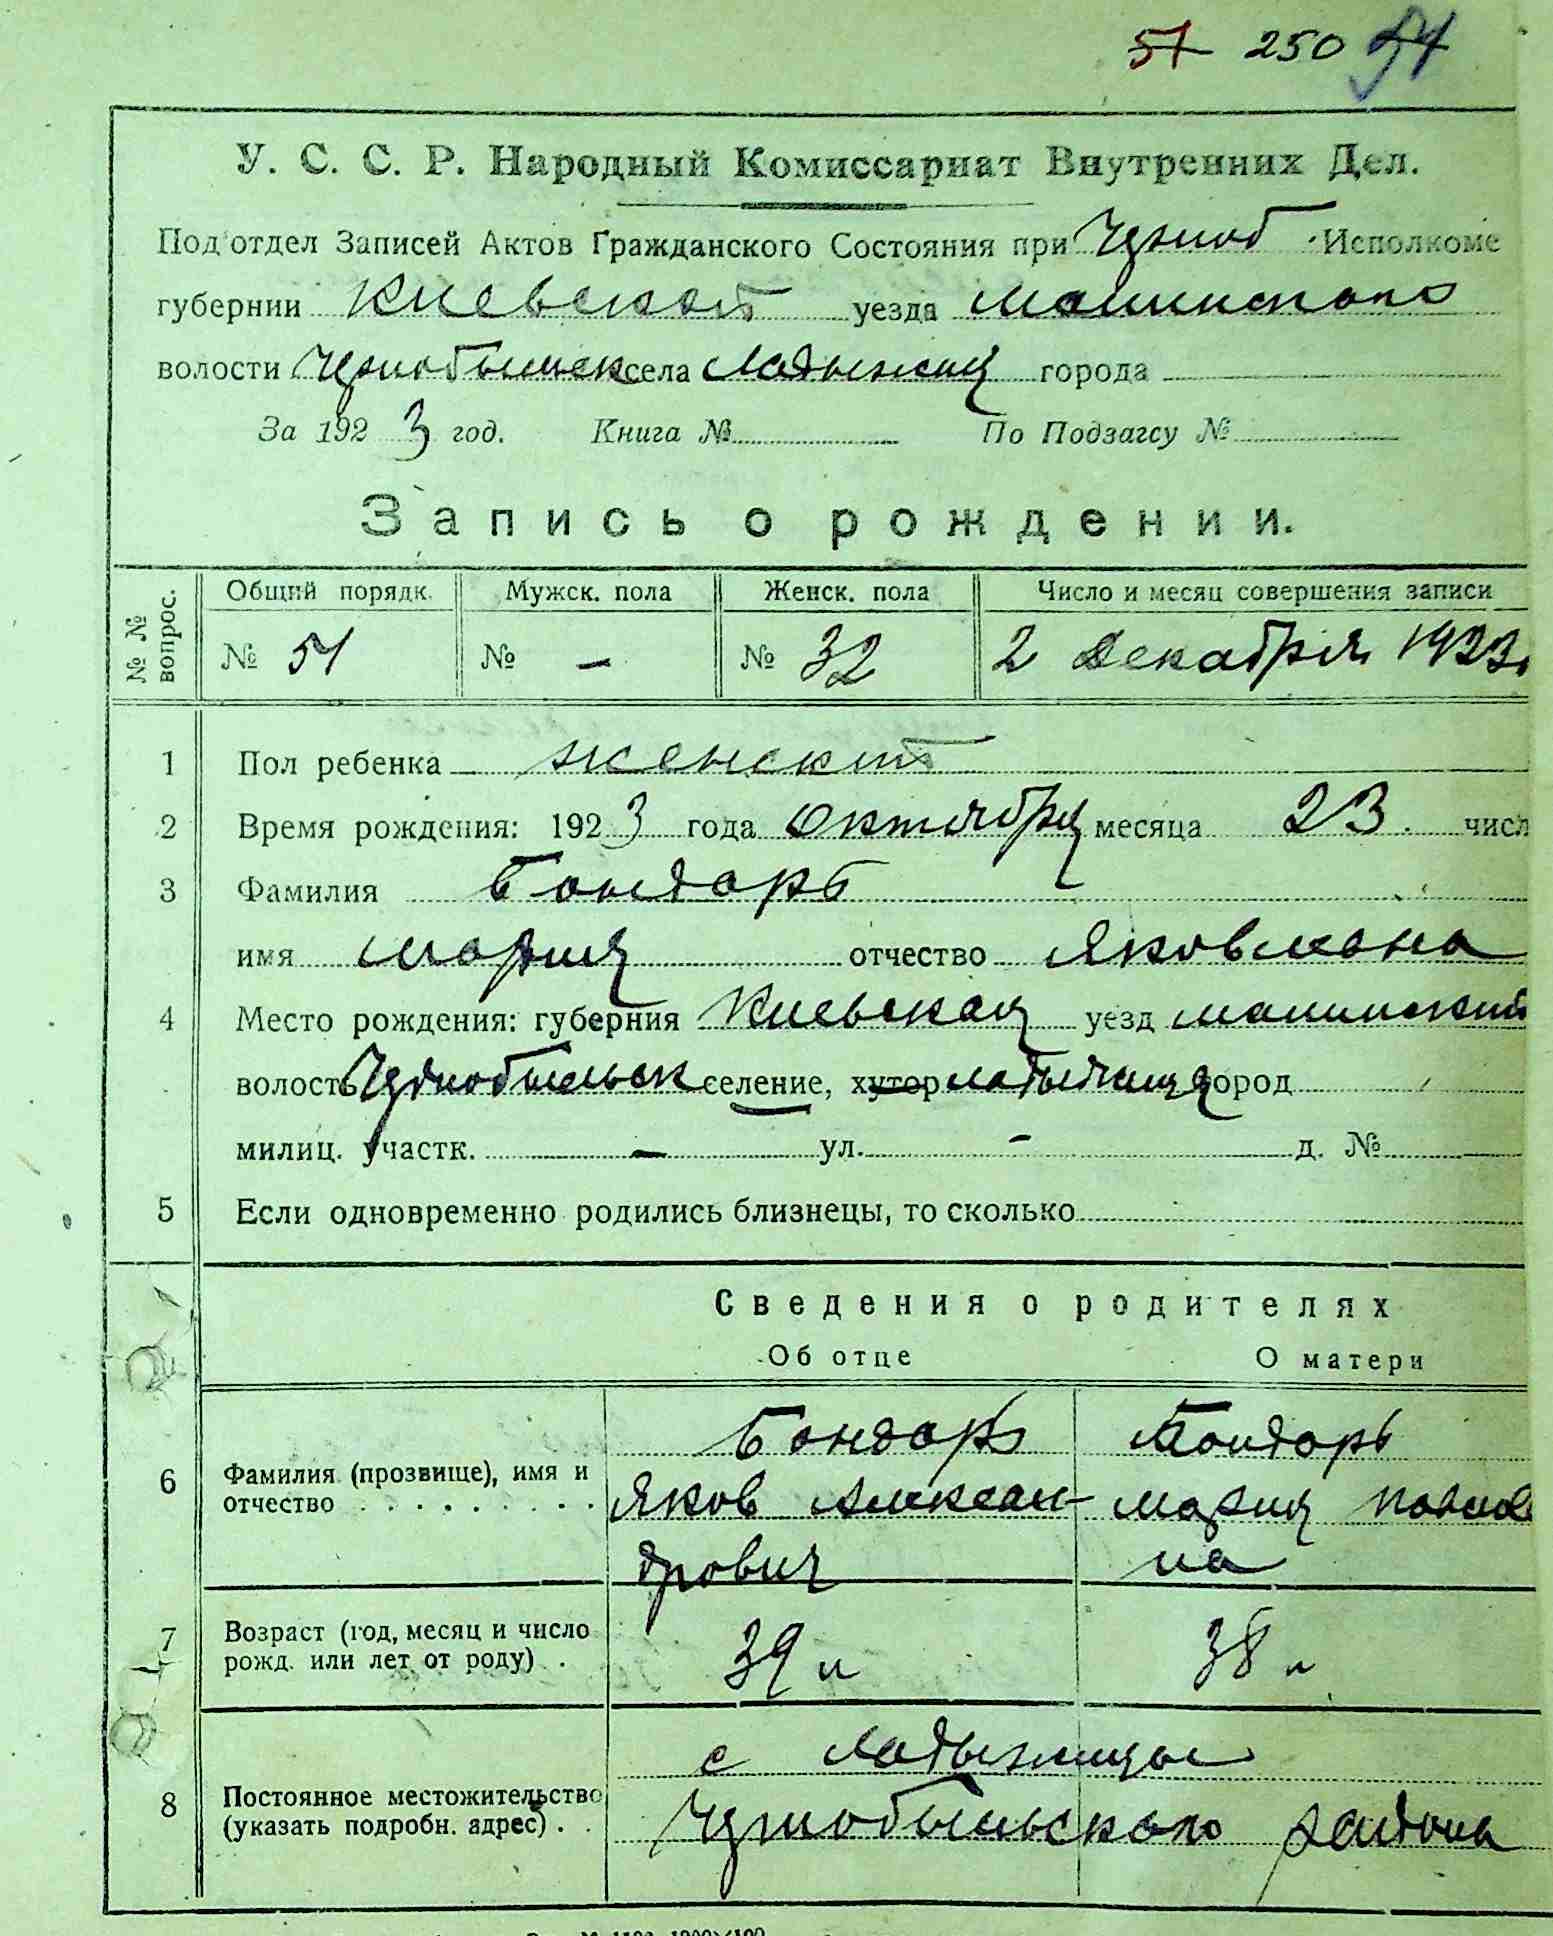 51 250 51
У. С. С. Р. Народный Комиссариат Внутренних Дел.
Под'отдел Записей Актов Гражданского Состояния при Черноб Исполкоме
губернии Киевской уезда Малинского
волости Чернобыльск села Ладыжичи города
За 1923 год. Книга № По Подзагсу №
Запись о рождении.
№ № вопрос. Общий порядк. Мужск. пола Женск. пола Число и месяц совершения записи
№ 51 № — № 32 2 Декабря 1923.
1 Пол ребенка женский
2 Время рождения: 1923 года октября месяца 23 числ
3 Фамилия Бондарь
имя Мария отчество Яковлевна
4 Место рождения: губерния Киевская уезд Малинский
волость Чернобыльск селение, хутор город
милиц. участк. — ул. - д. №
5 Если одновременно родились близнецы, то сколько
Сведения о родителях
Об отце О матери
Бондарь Бондарь
6 Фамилия (прозвище), имя и отчество Яков Алексан- Мария Павлов
дрович на
7 Возраст (год, месяц и число рожд. или лет от роду) 39 л 38 л
с Ладыжичи
8 Постоянное местожительство (указать подробн. адрес) Чернобыльского района